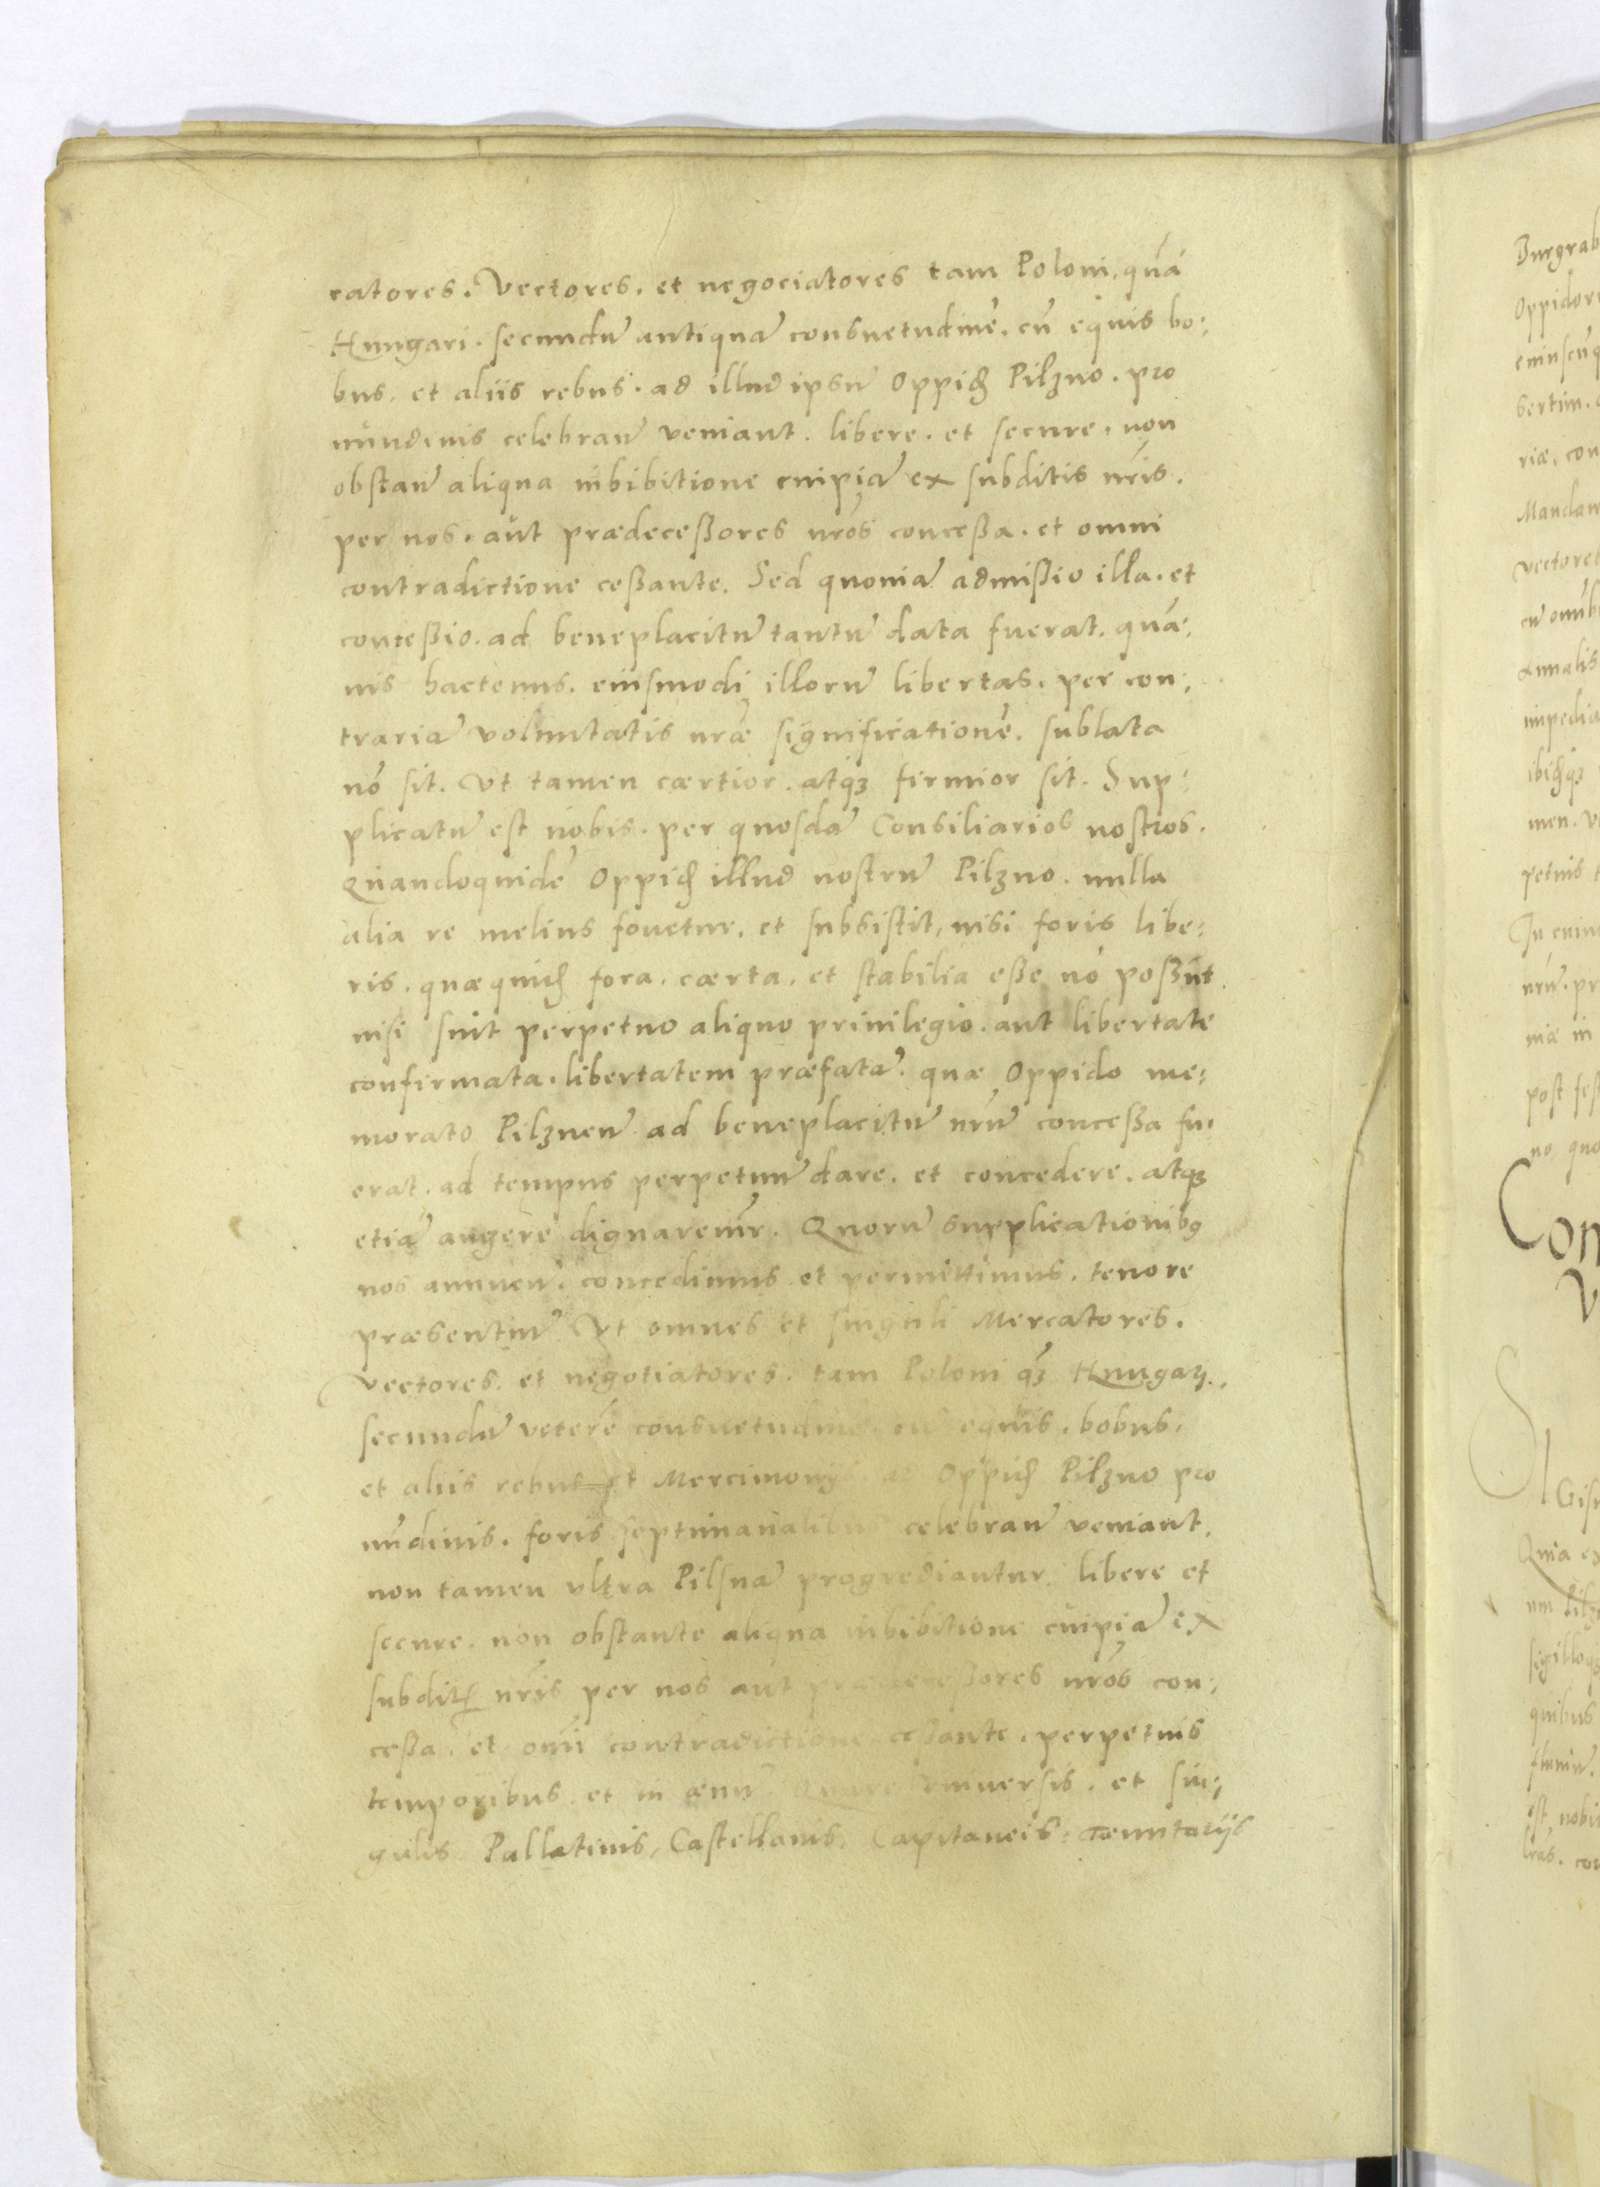 catores. Vectores. et negociatores tam Poloni, quā
Hungari. secundū antiquā consuetudinē. cū equis bo:
bus. et aliis rebus. ad illud ipsū Oppid Pilzno. pro
nundinis celebran veniant. libere. et secure. non
obstan aliqua inhibitione cuipiā ex subditis nris.
per nos. aut prædeceßores nros conceßa. et omni
contradictione ceßante. Sed quoniā admißio illa. et
conceßio. ad beneplacitū tantū data fuerat. quā:
uis hactenus. eiusmodi illorū libertas. per con:
trariā voluntatis nræ significationē. sublata
nō sit. Vt tamen cærtior. atq; firmior sit. Sup:
plicatū est nobis. per quosdā Consiliarios nostros.
Quandoquidē Oppid illud nostrū Pilzno. nulla
alia re melius fouetur. et subsistit, nisi foris libe:
ris. quæquid fora. cærta. et stabilia eße nō poßūt
nisi sint perpetuo aliquo priuilegio. aut libertate
confirmata. libertatem præfatā. quæ Oppido me:
morato Pilznen ad beneplacitū nrū conceßa fu:
erat. ad tempus perpetuū dare. et concedere. atq;
etiā augere dignaremr. Quorū supplicationib9
nos annuen. concedimus et permittimus. tenore
præsentiū Vt omnes et singuli Mercatores.
Vectores. et negotiatores. tam Poloni q; Hungari.
secundū veterē consuetudinē. cū equis. bobus.
et aliis rebus et Mercimonijs ad Oppid Pilzno pro
nūdinis. foris septimanalibus celebran veniant.
non tamen vltra Pilsnā progrediantur. libere et
secure. non obstante aliqua inhibitione cuipiā ex
subditis nris per nos aut prædeceßores nros con:
ceßa. et omi contradictione ceßante. perpetuis
temporibus. et in æuū Quare vniuersis. et sin:
gulis Pallatinis, Castellanis, Capitaneis. Tenutarijs